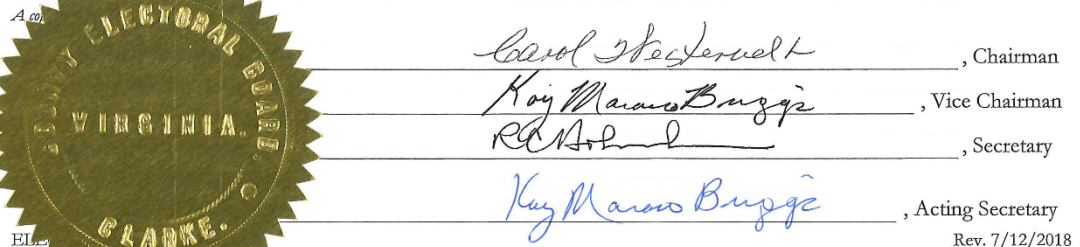 A cop
COUNTY ELECTORAL BOARD.
VIRGINIA.
CLARKE.
Carol Westervelt , Chairman
Kay Marano Briggs , Vice Chairman
, Secretary
Kay Marano Briggs , Acting Secretary
ELE
Rev. 7/12/2018